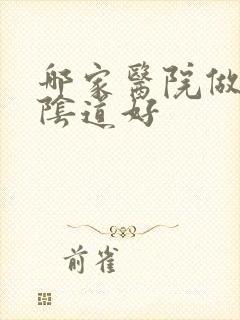 哪家醫院做
陰道好
前雀